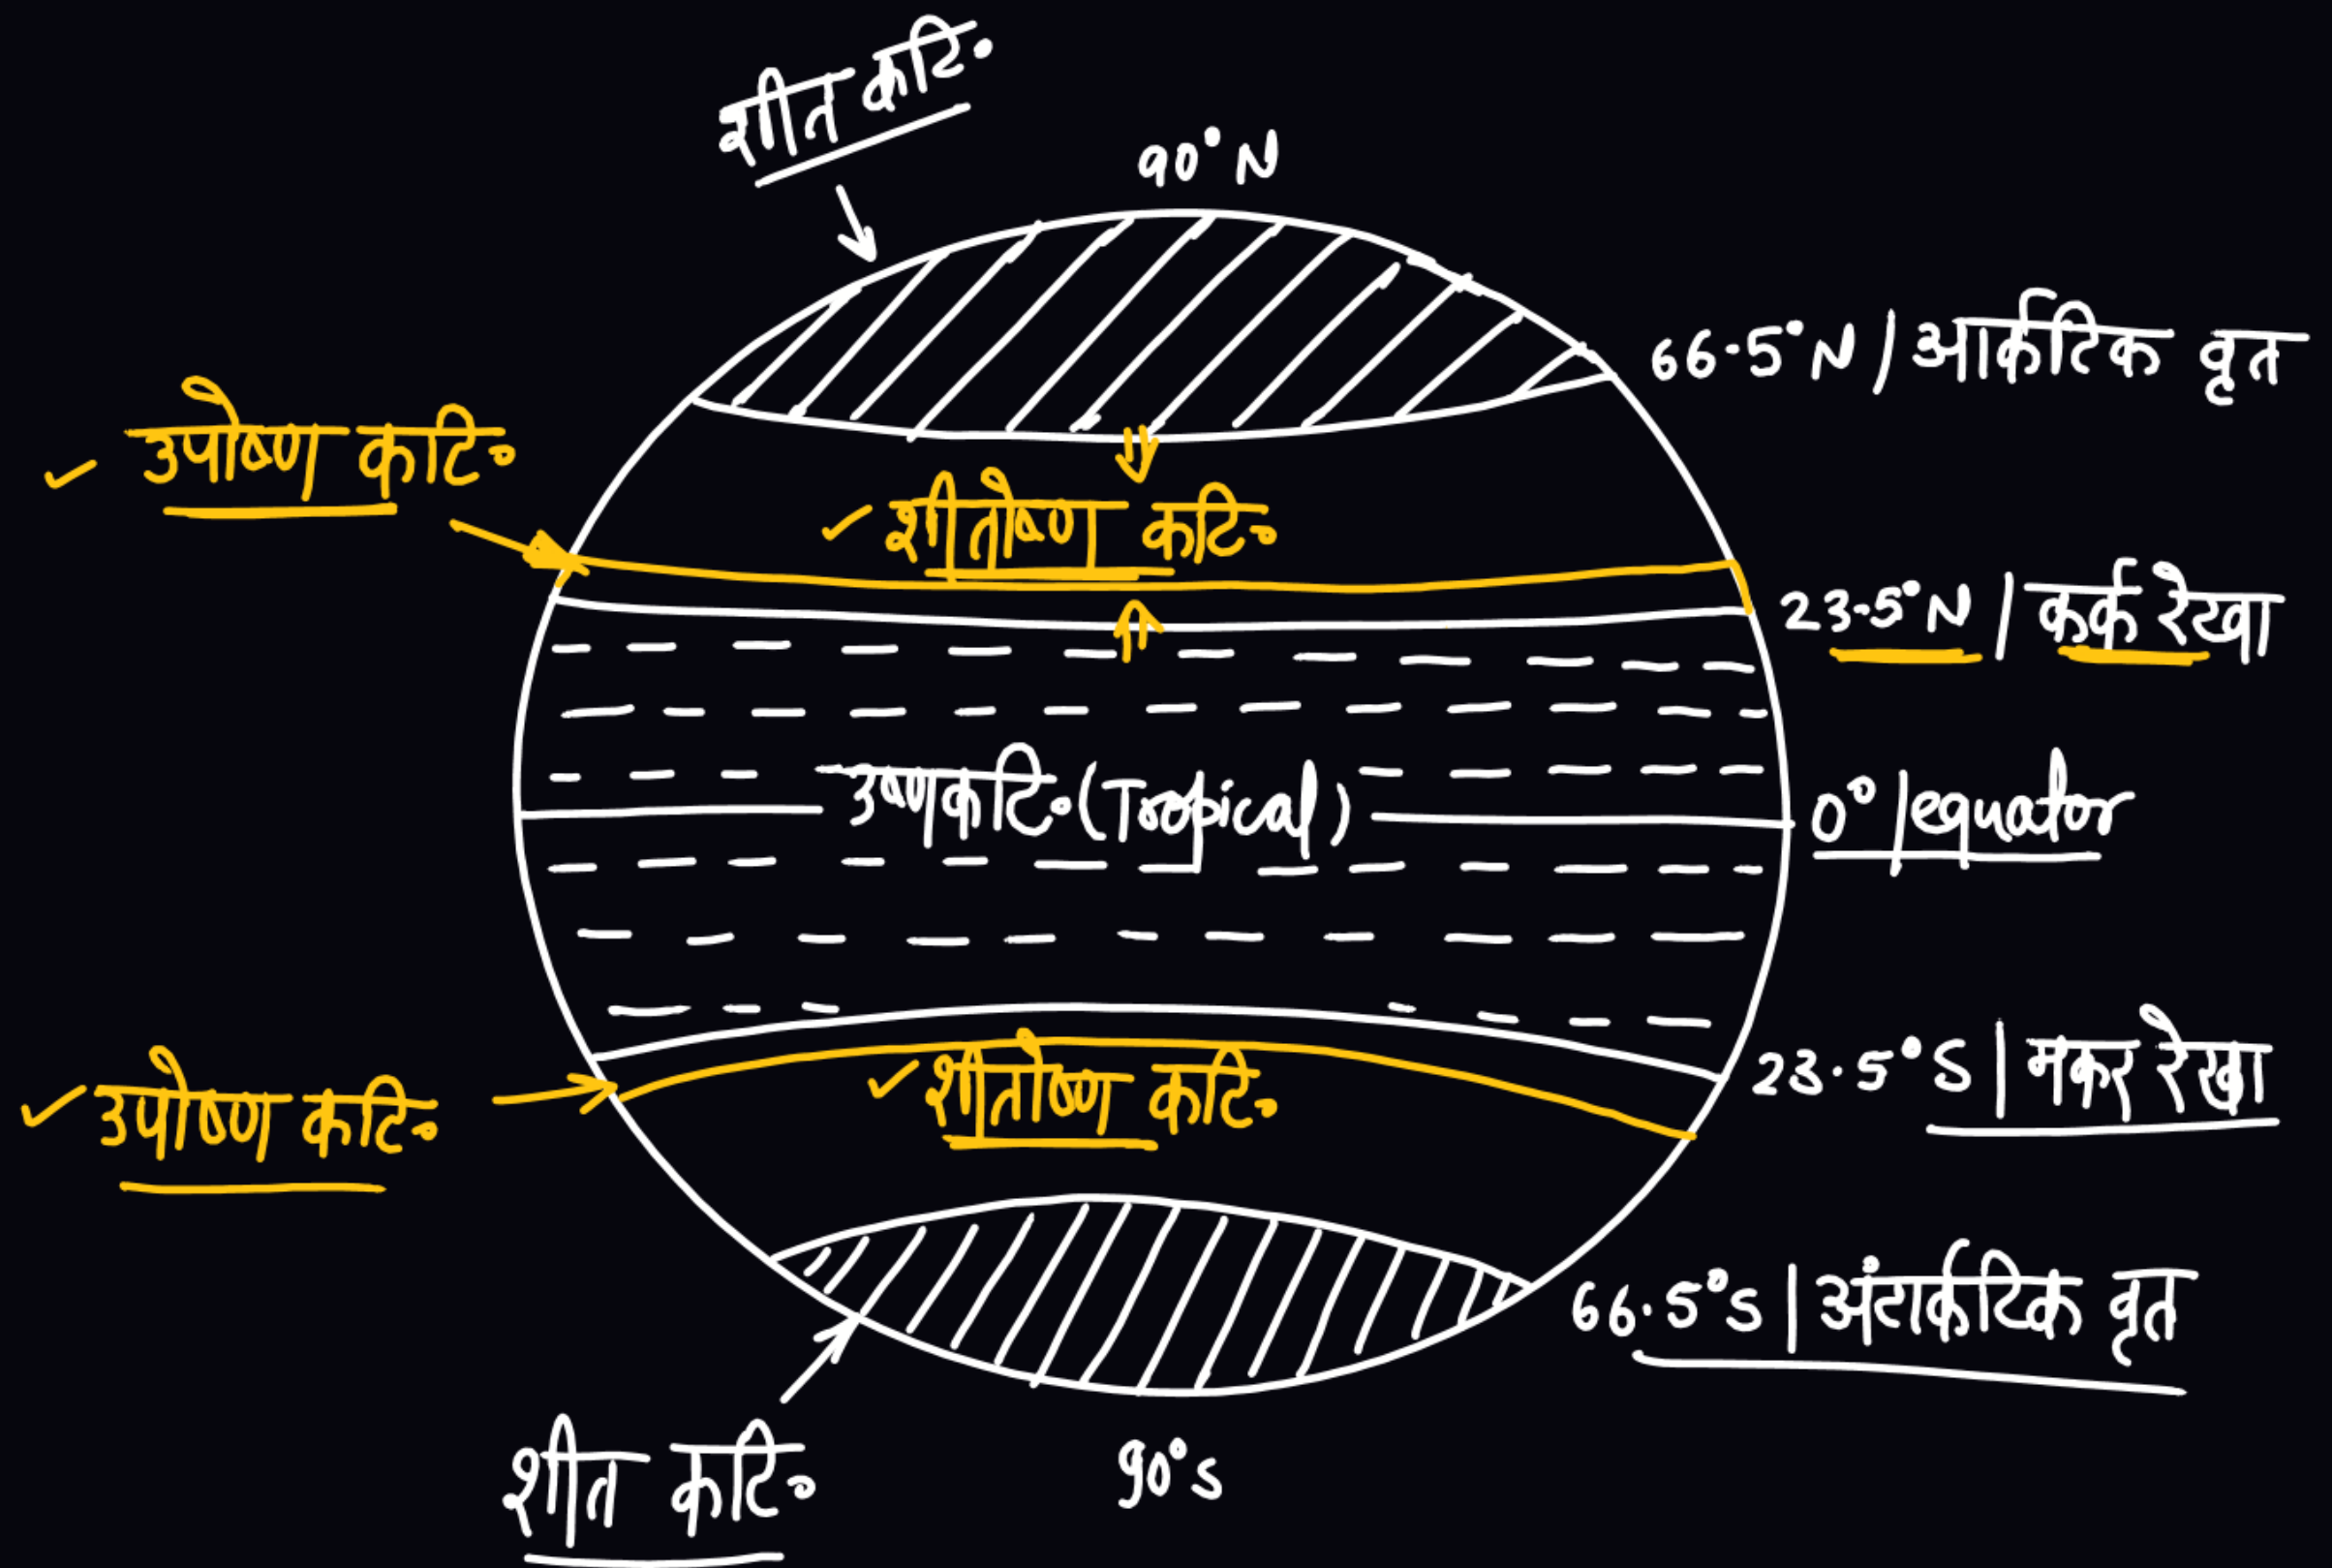 शीत कटि॰
90°N
66.5°N / आर्कटिक वृत
✓ उपोष्ण कटि॰
✓ शीतोष्ण कटि॰
23.5°N | कर्क रेखा
उष्णकटि॰ (Tropical)
0° | equator
23.5°S | मकर रेखा
✓ उपोष्ण कटि॰
✓ शीतोष्ण कटि॰
66.5°S | अंटार्कटिक वृत
शीत कटि॰
90°S